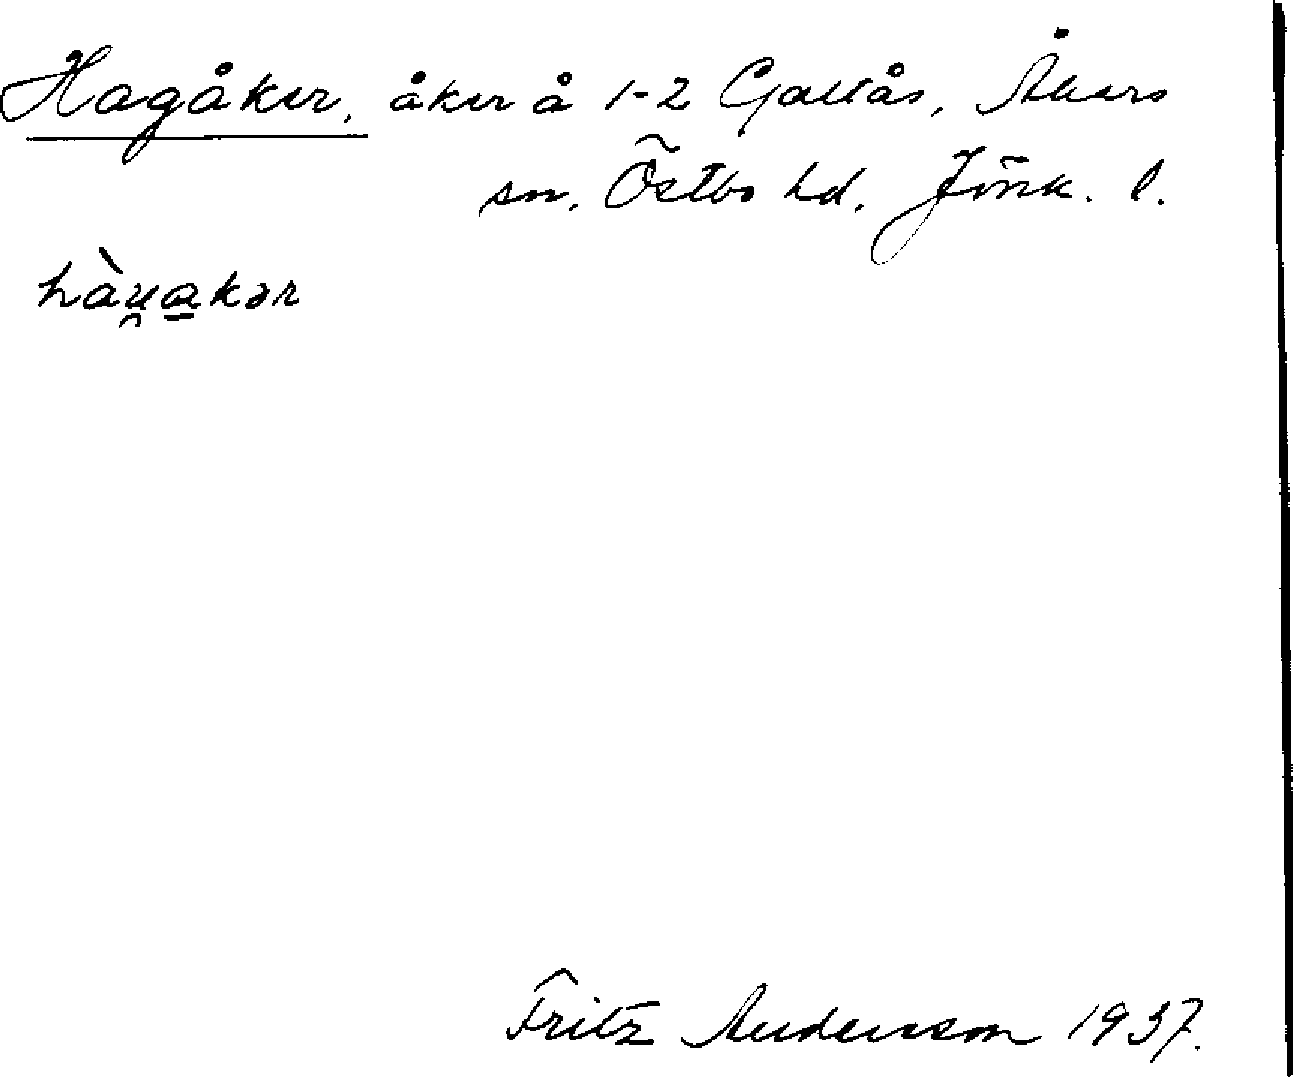 Hagåker, åker å 1-2 Gallås, Åkers
sn, Östbo hd, Jönk. l.
hàu̯a̱kər
Fritz Andersson 1937.